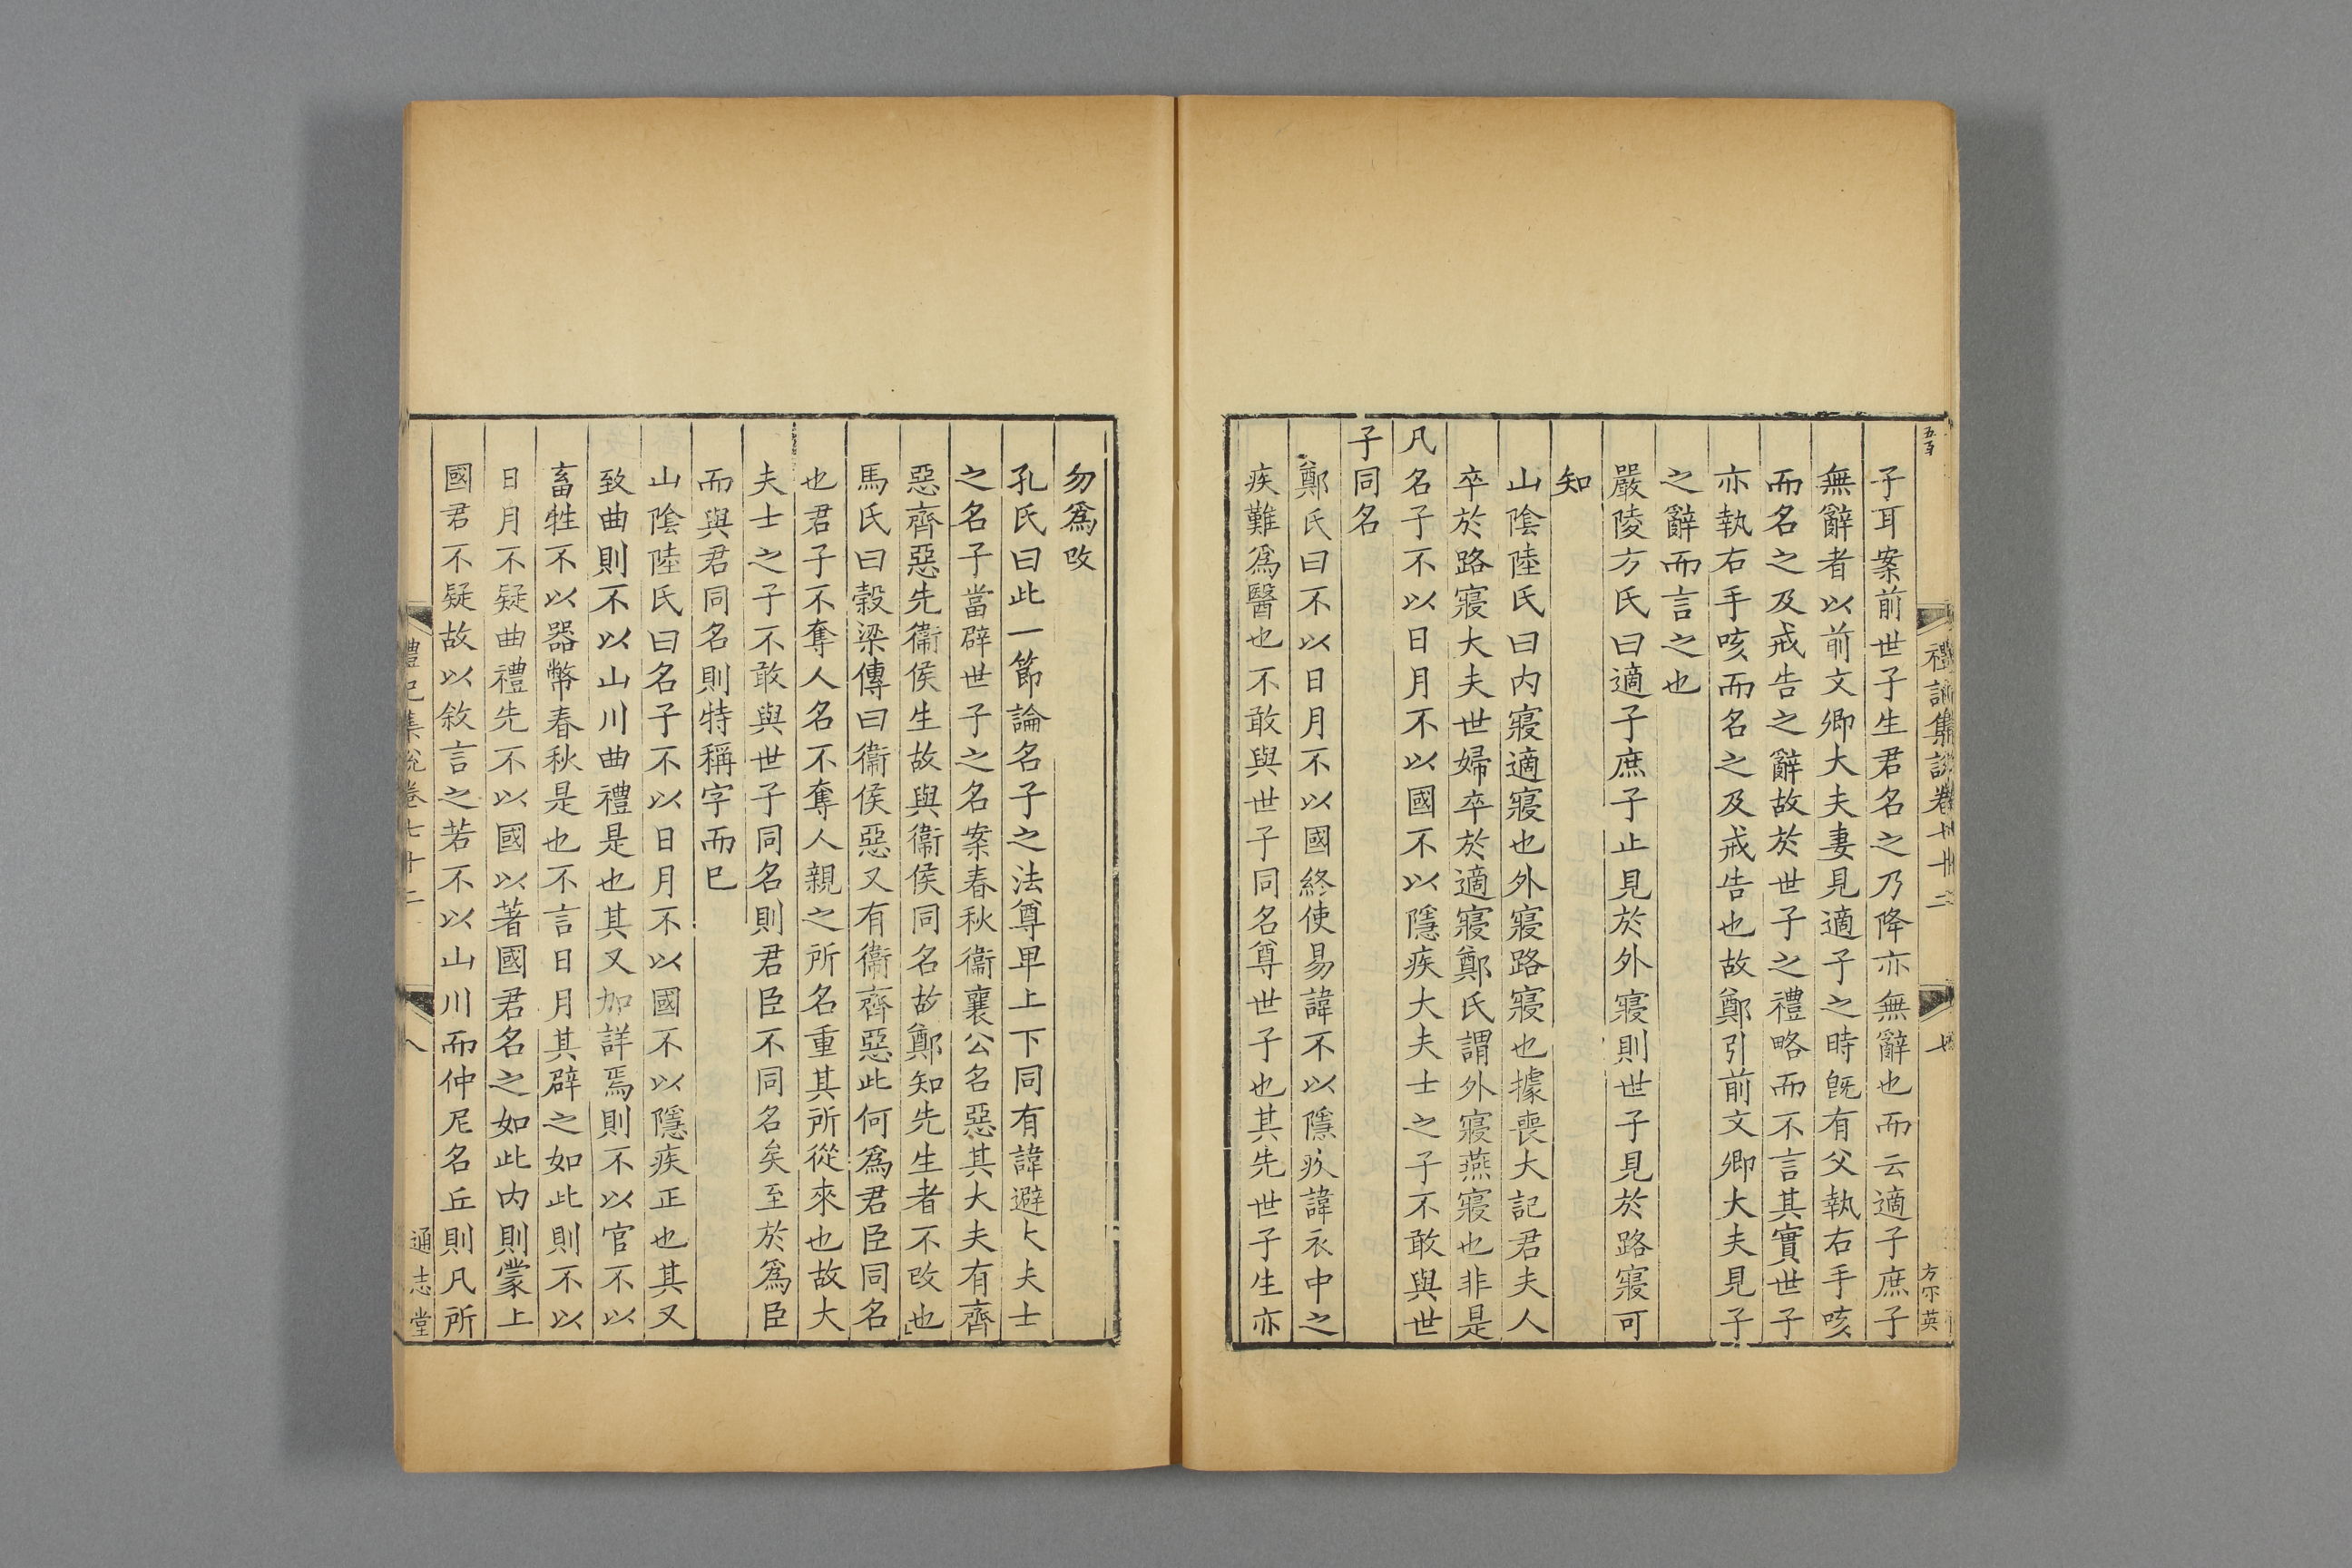 子耳案前世子生君名之乃降亦無辭也而云適子庶子
無辭者以前文卿大夫妻見適子之時旣有父執右手咳
而名之及戒告之辭故於世子之禮略而不言其實世子
亦執右手咳而名之及戒告也故鄭引前文卿大夫見子
之辭而言之也
嚴陵方氏曰適子庶子止見於外寢則世子見於路寢可
知
山陰陸氏曰内寢適寢也外寢路寢也據喪大記君夫人
卒於路寢大夫世婦卒於適寢鄭氏謂外寢燕寢也非是
凡名子不以日月不以國不以隱疾大夫士之子不敢與世
子同名
鄭氏曰不以日月不以國終使易諱不以隱疾諱衣中之
疾難爲醫也不敢與世子同名尊世子也其先世子生亦
勿爲改
孔氏曰此一節論名子之法尊卑上下同有諱避大夫士
之名子當辟世子之名案春秋衞襄公名惡其大夫有齊
惡齊惡先衞侯生故與衞侯同名故鄭知先生者不改也
馬氏曰穀梁傳曰衞侯惡又有衞齊惡此何爲君臣同名
也君子不奪人名不奪人親之所名重其所從來也故大
夫士之子不敢與世子同名則君臣不同名矣至於爲臣
而與君同名則特稱字而已
山陰陸氏曰名子不以日月不以國不以隱疾正也其又
致曲則不以山川曲禮是也其又加詳焉則不以官不以
畜牲不以器幣春秋是也不言日月其辟之如此則不以
日月不疑曲禮先不以國以著國君名之如此内則蒙上
國君不疑故以敘言之若不以山川而仲尼名丘則凡所
禮記集說卷七十二
八
通志堂